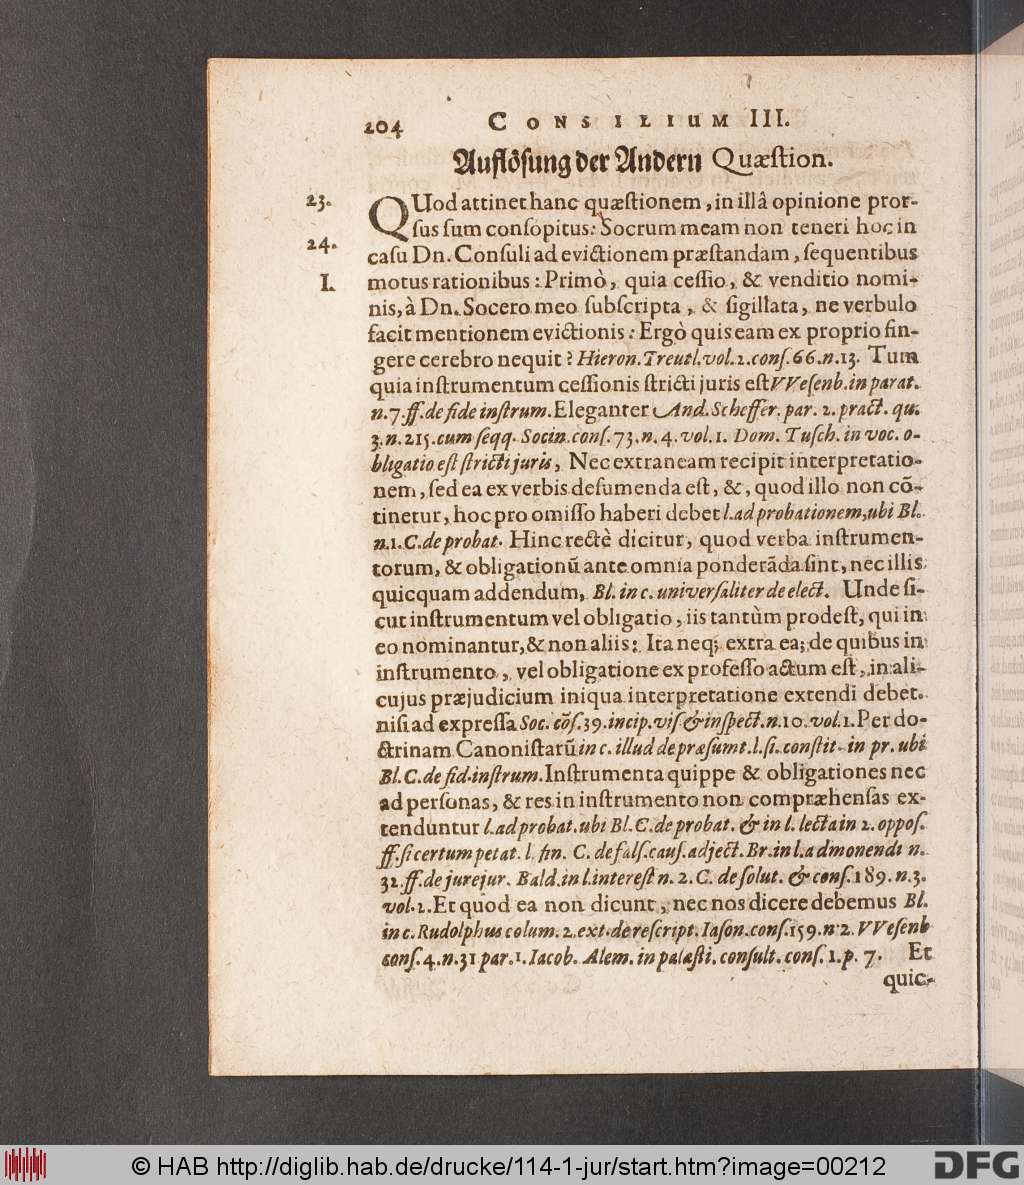 204 CONSILIUM III.
Auflösung der Andern Quæstion.
23. QUod attinet hanc quæstionem, in illâ opinione pror-
24. sus sum consopitus: Socrum meam non teneri hoc in
casu Dn. Consuli ad evictionem præstandam, sequentibus
I. motus rationibus: Primò, quia cessio, & venditio nomi-
nis, à Dn. Socero meo subscripta, & sigillata, ne verbulo
facit mentionem evictionis: Ergò quis eam ex proprio fin-
gere cerebro nequit? Hieron. Treutl. vol. 2. cons. 66. n. 13. Tum
quia instrumentum cessionis stricti juris est VVesenb. in parat.
n. 7. ff. de fide instrum. Eleganter And. Scheffer. par. 2. pract. qu.
3. n. 215. cum seqq. Socin. cons. 73. n. 4. vol. 1. Dom. Tusch. in voc. o-
bligatio est stricti juris, Nec extraneam recipit interpretatio-
nem, sed ea ex verbis desumenda est, &, quod illo non cõ-
tinetur, hoc pro omisso haberi debet l. ad probationem, ubi Bl.
n. 1. C. de probat. Hinc rectè dicitur, quod verba instrumen-
torum, & obligationũ ante omnia ponderãda sint, nec illis
quicquam addendum, Bl. in c. universaliter de elect. Unde si-
cut instrumentum vel obligatio, iis tantùm prodest, qui in
eo nominantur, & non aliis: Ita neq; extra ea; de quibus in
instrumento, vel obligatione ex professo actum est, in ali-
cujus præjudicium iniqua interpretatione extendi debet.
nisi ad expressa Soc. cõs. 39. incip. vis. & inspect. n. 10. vol. 1. Per do-
ctrinam Canonistarũ in c. illud de præsumt. l. si. constit. in pr. ubi
Bl. C. de fid. instrum. Instrumenta quippe & obligationes nec
ad personas, & res in instrumento non compræhensas ex-
tenduntur l. ad probat. ubi Bl. C. de probat. & in l. lecta in 2. oppos.
ff. si certum petat. l. fin. C. de fals. caus. adject. Br. in l. admonendi n.
32. ff. de jurejur. Bald. in l. interest n. 2. C. de solut. & cons. 189. n. 3.
vol. 2. Et quod ea non dicunt, nec nos dicere debemus Bl.
in c. Rudolphus colum. 2. ext. de rescript. Iason. cons. 159. n. 2. VVesenb
cons. 4. n. 31 par. 1. Iacob. Alem. in palæsti. consult. cons. 1. p. 7. Et
quic-
© HAB http://diglib.hab.de/drucke/114-1-jur/start.htm?image=00212
DFG